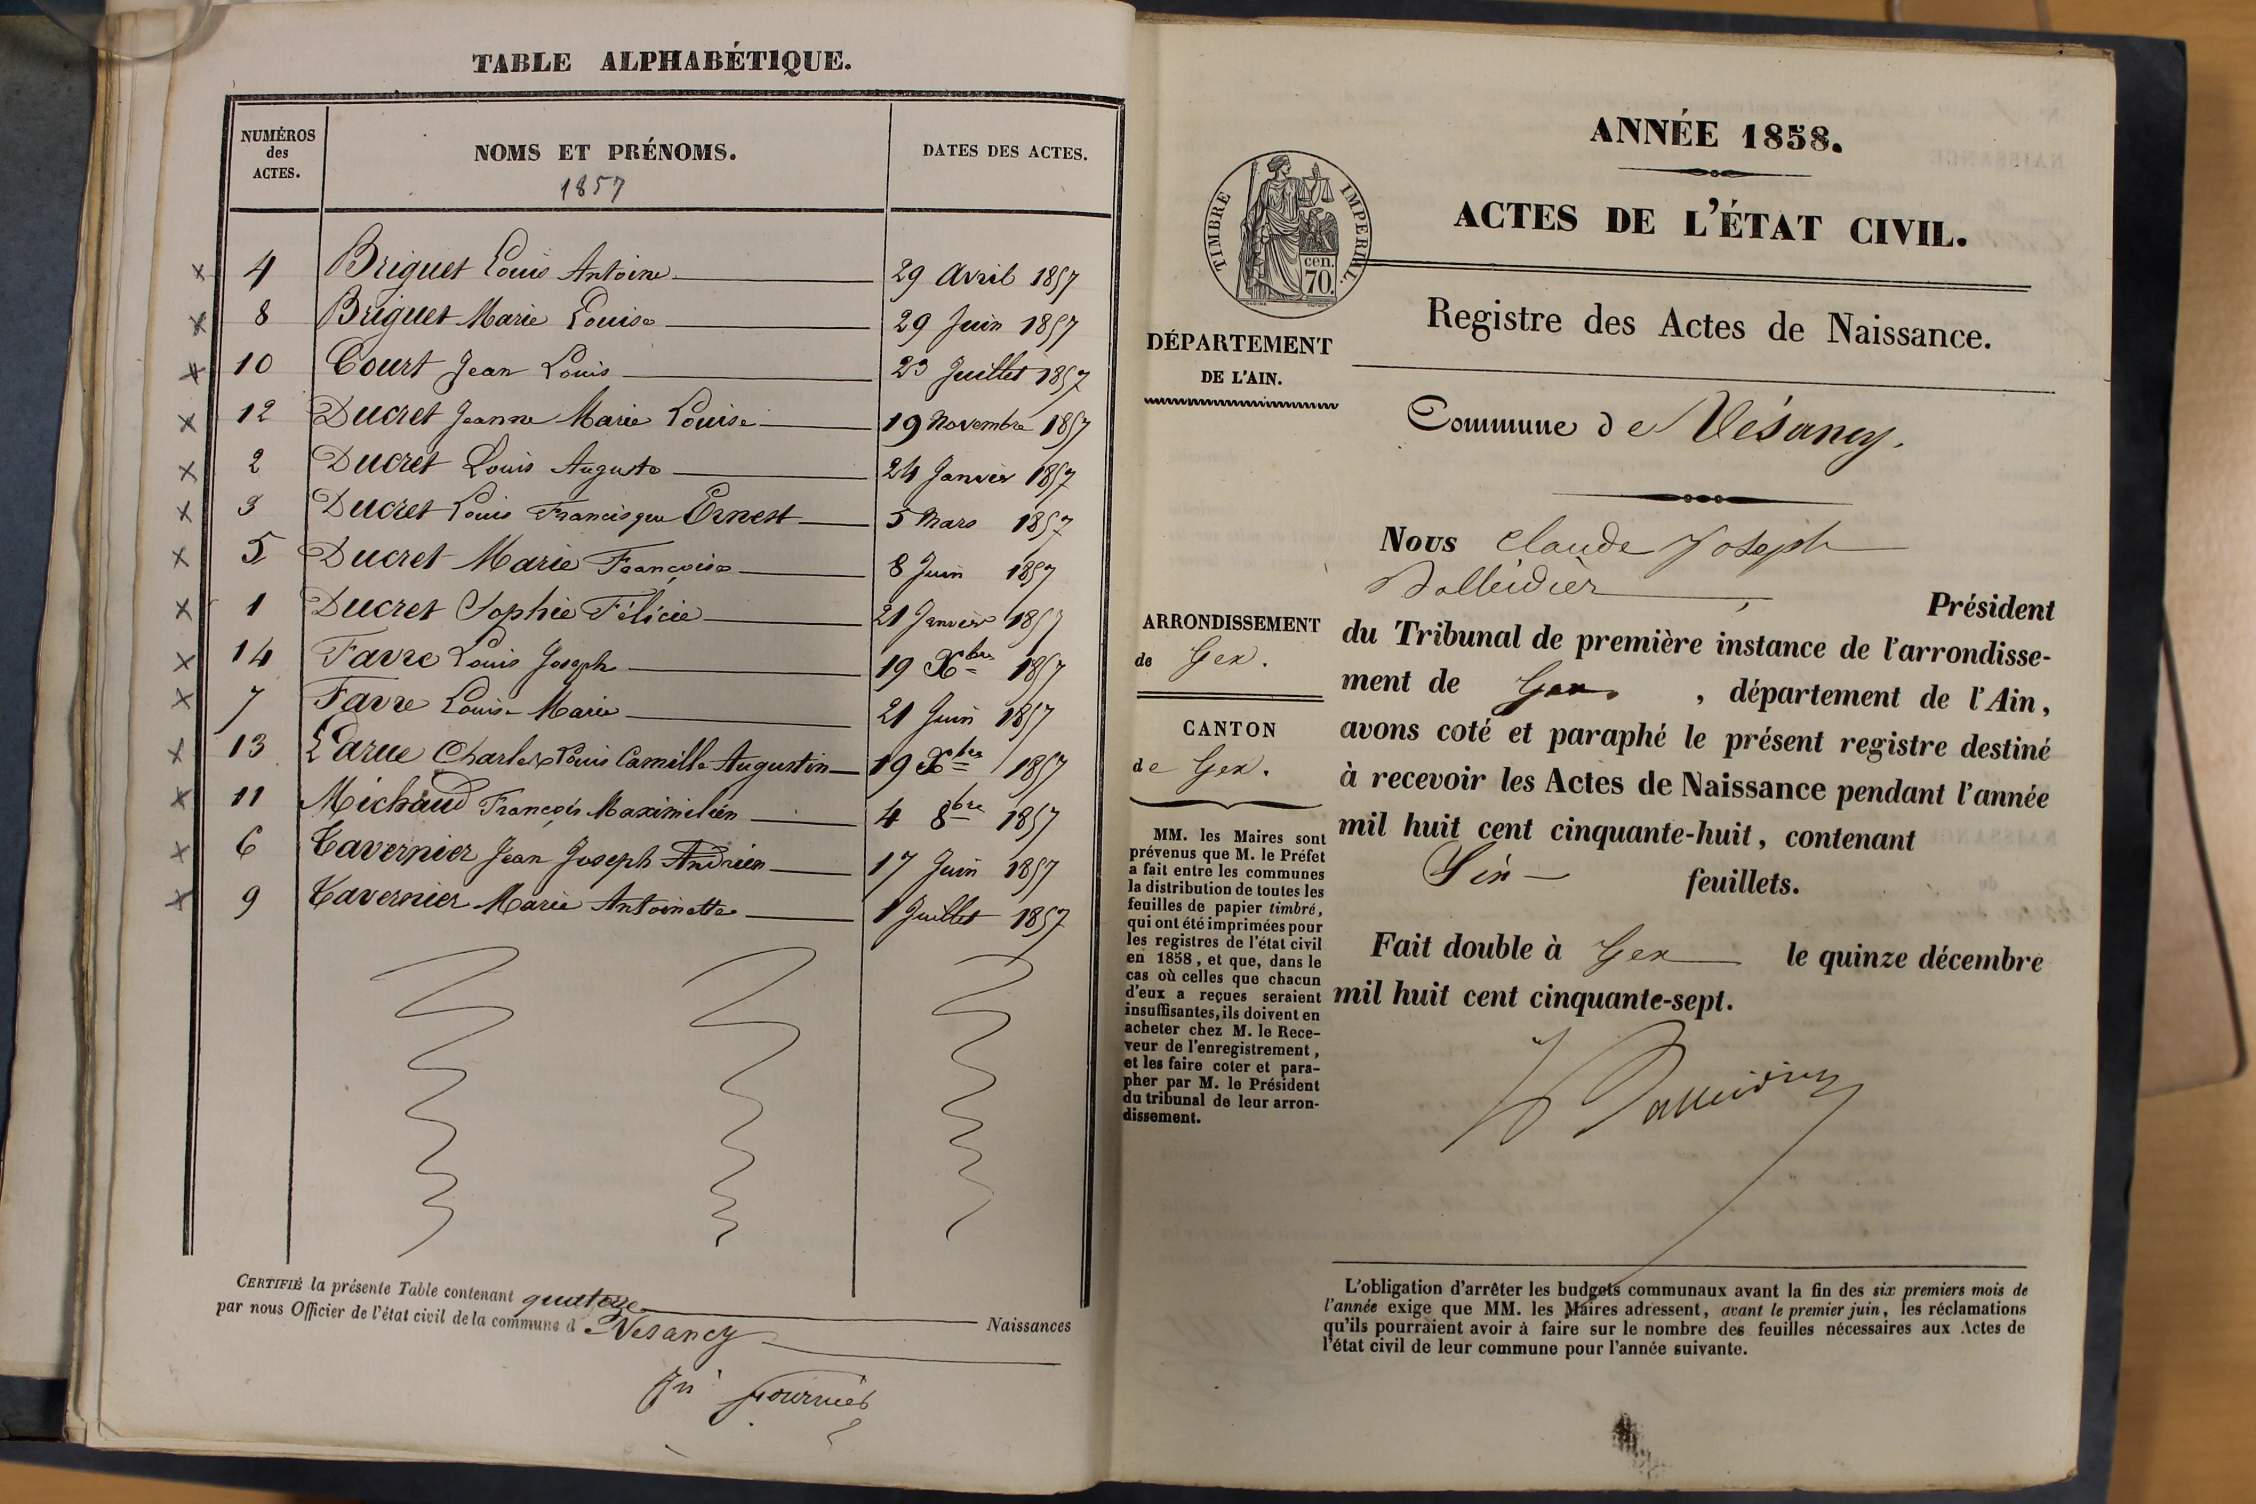 TABLE ALPHABÉTIQUE.
NUMÉROS
des
ACTES.
NOMS ET PRÉNOMS.
1857
DATES DES ACTES.
4 Briguet Louis Antoine 29 Avril 1857
8 Briguet Marie Louise 29 Juin 1857
10 Court Jean Louis 23 Juillet 1857
12 Ducret Jeanne Marie Louise 19 Novembre 1857
2 Ducret Louis Auguste 24 Janvier 1857
3 Ducret Louis Francisque Ernest 5 Mars 1857
5 Ducret Marie Françoise 8 Juin 1857
1 Ducret Sophie Félicie 21 Janvier 1857
14 Favre Louis Joseph 19 Xbre 1857
7 Favre Louis Marie 21 Juin 1857
13 Larue Charles Louis Camille Augustin 19 Xbre 1857
11 Michaud François Maximilien 4 8bre 1857
6 Tavernier Jean Joseph Andrien 17 Juin 1857
9 Tavernier Marie Antoinette 1 Juillet 1857
CERTIFIÉ la présente Table contenant quatorze Naissances
par nous Officier de l'état civil de la commune d Vesancy
Fournier
ANNÉE 1858.
ACTES DE L'ÉTAT CIVIL.
TIMBRE IMPERIAL.
cen.
70.
Registre des Actes de Naissance.
DÉPARTEMENT
DE L'AIN.
Commune de Vésancy.
Nous Claude Joseph
Président
du Tribunal de première instance de l'arrondisse-
ment de Gex, département de l'Ain,
avons coté et paraphé le présent registre destiné
à recevoir les Actes de Naissance pendant l'année
mil huit cent cinquante-huit, contenant
feuillets.
Fait double à Gex le quinze décembre
mil huit cent cinquante-sept.
ARRONDISSEMENT
de Gex.
CANTON
de Gex.
MM. les Maires sont
prévenus que M. le Préfet
a fait entre les communes
la distribution de toutes les
feuilles de papier timbré,
qui ont été imprimées pour
les registres de l'état civil
en 1858, et que, dans le
cas où celles que chacun
d'eux a reçues seraient
insuffisantes, ils doivent en
acheter chez M. le Rece-
veur de l'enregistrement,
et les faire coter et para-
pher par M. le Président
du tribunal de leur arron-
dissement.
L'obligation d'arrêter les budgets communaux avant la fin des six premiers mois de
l'année exige que MM. les Maires adressent, avant le premier juin, les réclamations
qu'ils pourraient avoir à faire sur le nombre des feuilles nécessaires aux Actes de
l'état civil de leur commune pour l'année suivante.